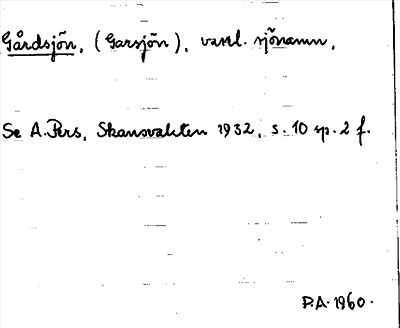 Gårdsjön, (Garsjön), vanl. sjönamn.
Se A. Pers, Skansvakten 1932, s. 10 sp. 2 f.
P.A. 1960.